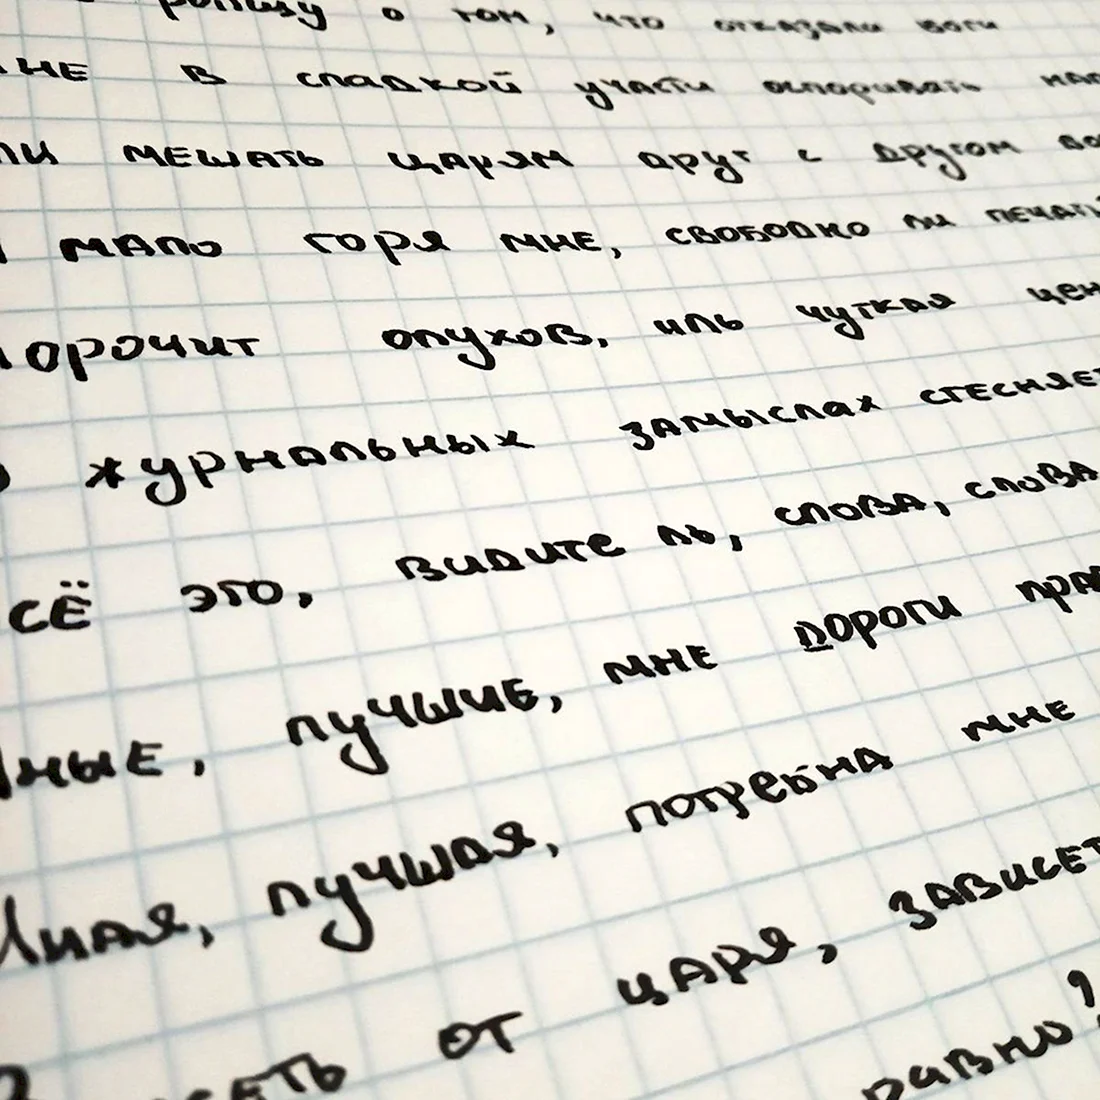 ропщу о том, что отказали боги
мне в сладкой участи оспоривать нал
ли мешать царям друг с другом во
мало горя мне, свободно ли печать
орочит опухов, иль чуткая цен
журнальных замыслах стесняет
сё это, видите ль, слова, слова
ные, лучшие, мне дороги пра
Иная, лучшая, потребна мне
сеть от царя, зависет
равно?